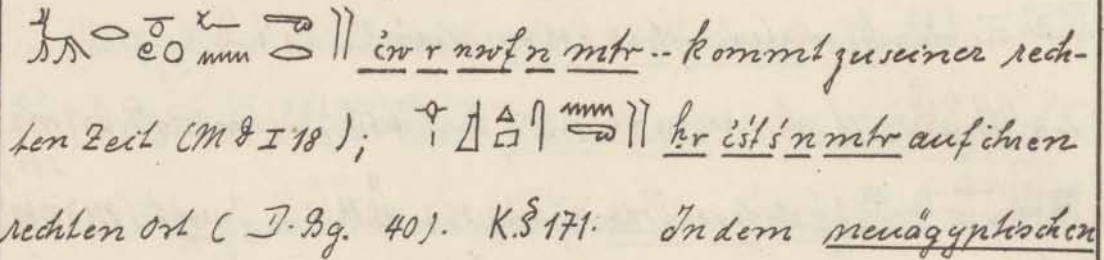 ı͗w r nwf n mtr -- kommt zu seiner rech-
ten Zeit (Md I 18); ḥr ı͗śt ś n mtr auf ihren
rechten Ort ( D. Bg. 40). K.§ 171. In dem neuägyptischen